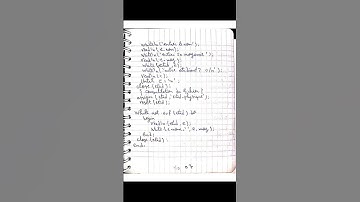 writeln('entrer le nom');
readln(e.nom);
writeln('entrer la moyenne');
readln(e.moy);
write(etud, e);
writeln('autre etudiant? o/n');
readln(c);
until c='n';
close(etud);
{ consultation du fichier }
assign(etud,'etud.physique');
reset(etud);
While not eof(etud) do
begin
read(etud, e);
write(e.nom,' ', e.moy);
end;
close(etud);
end.